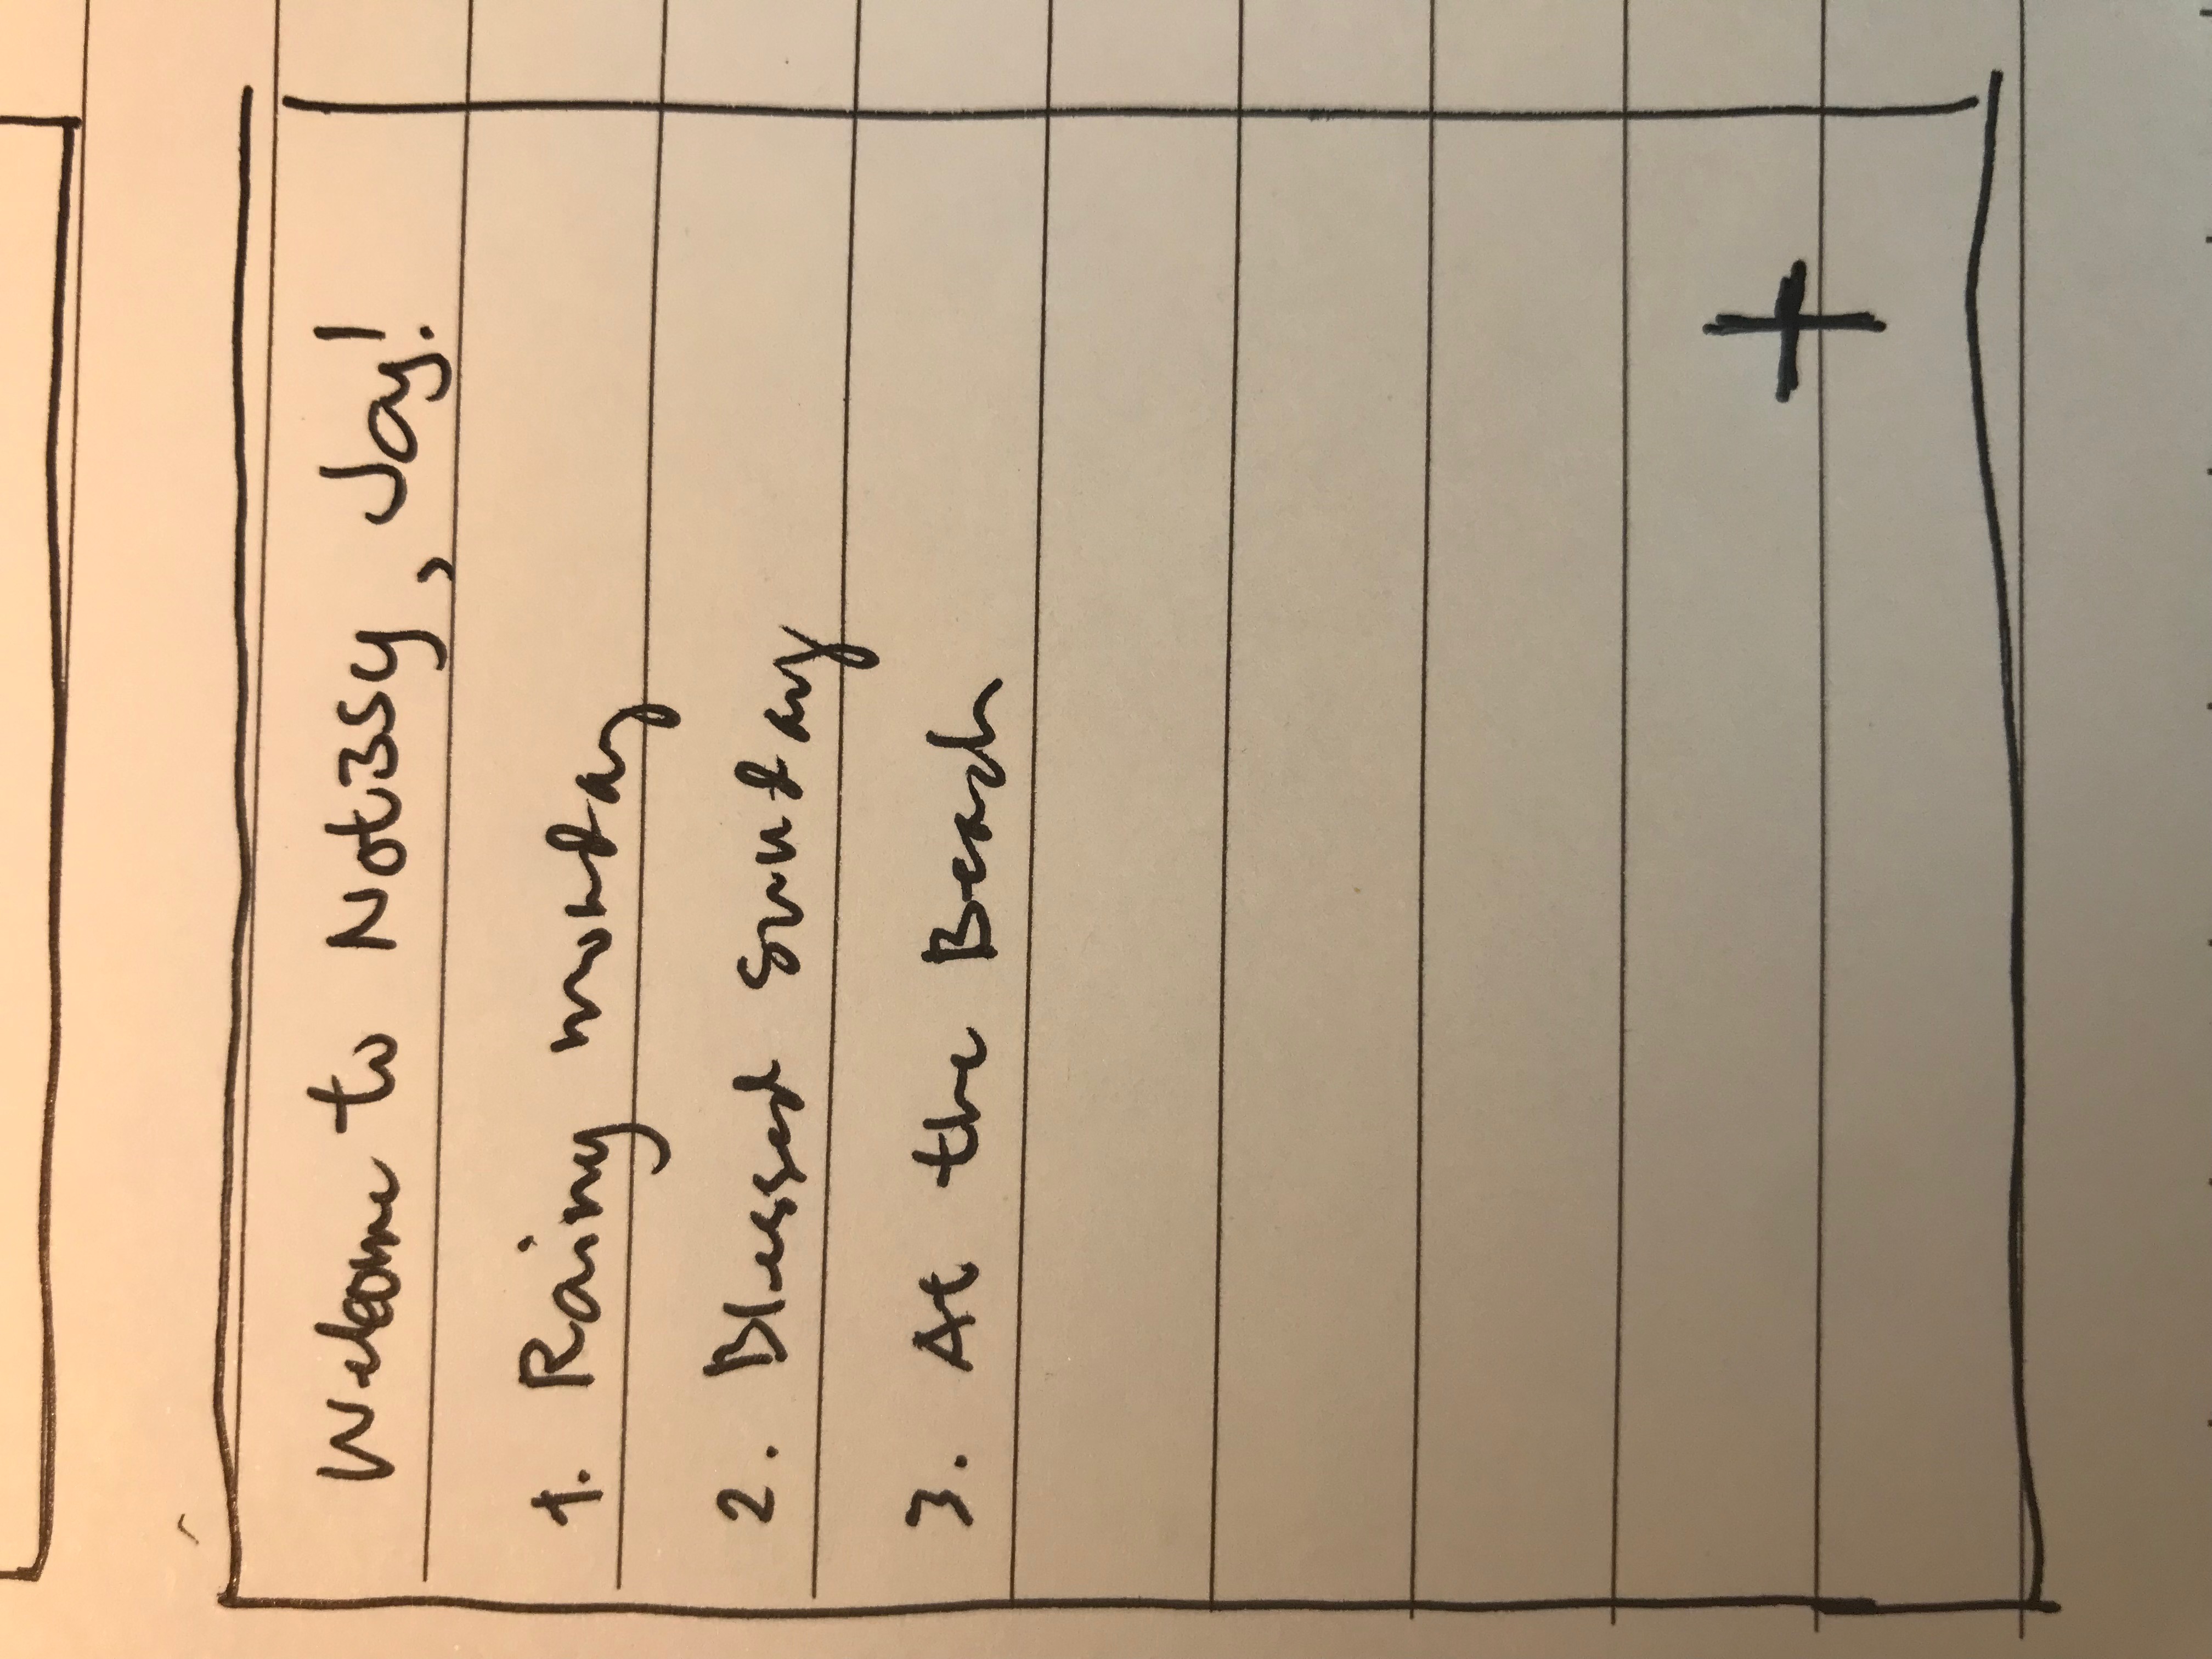 Welcome to Not3sy, Joy!
1. Rainy monday
2. Blessed sunday
3. At the Beach
+